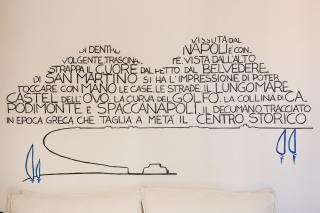 VISSUTA DAL
DI DENTRO, NAPOLI È CON
VOLGENTE, TRASCINA RE. VISTA DALL'ALTO
STRAPPA IL CUORE DAL PETTO. DAL BELVEDERE
DI SAN MARTINO SI HA L'IMPRESSIONE DI POTER
TOCCARE CON MANO LE CASE, LE STRADE IL LUNGOMARE
CASTEL DELL'OVO, LA CURVA DEL GOLFO, LA COLLINA DI CA
PODIMONTE E SPACCANAPOLI, IL DECUMANO TRACCIATO
IN EPOCA GRECA CHE TAGLIA A METÀ IL CENTRO STORICO